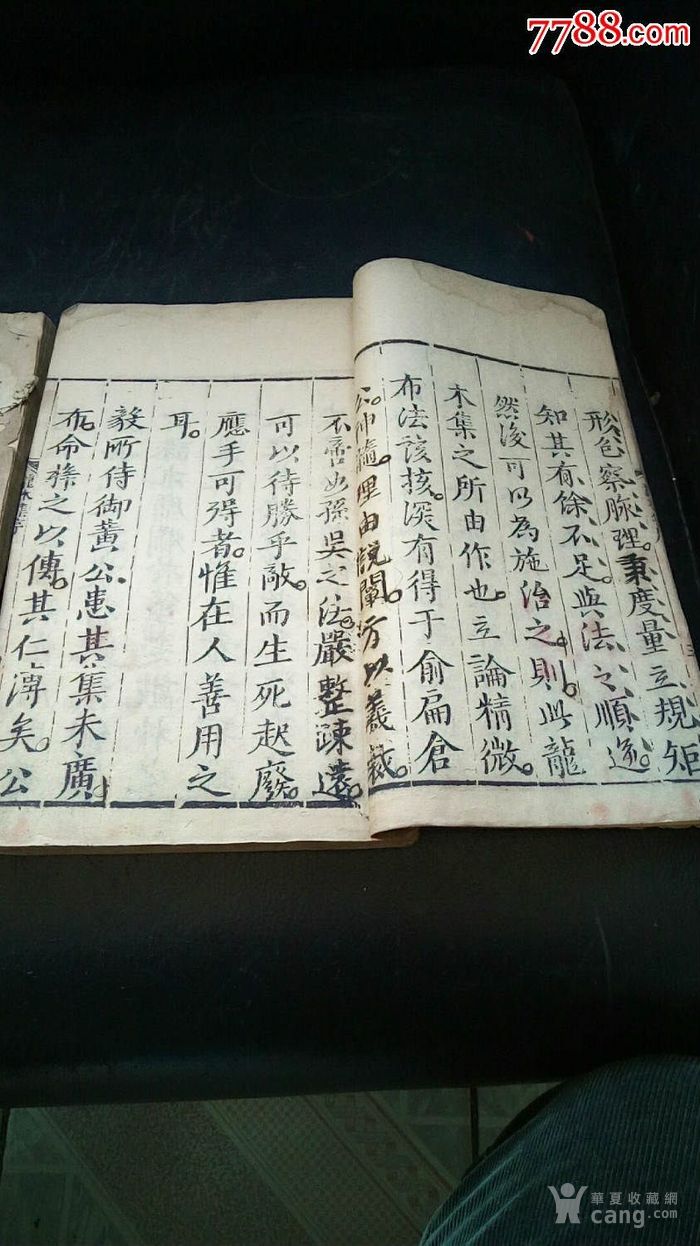 7788.com
形色察脈理。秉度量立規矩
知其有餘不足。與法之順逆。
然後可以為施治之則。此龍
木集之所由作也。立論精微。
布法該核。深有得于俞扁倉
公。神髓。理由說闡。方以義裁。
不啻如孫吳之法。嚴整疎遠。
可以待勝乎敵。而生死起廢。
應手可得者。惟在人善用之
耳。
毅所侍御黃公。患其集未廣
布。命梓之以傳。其仁溥矣。公
華夏收藏網
cang.com